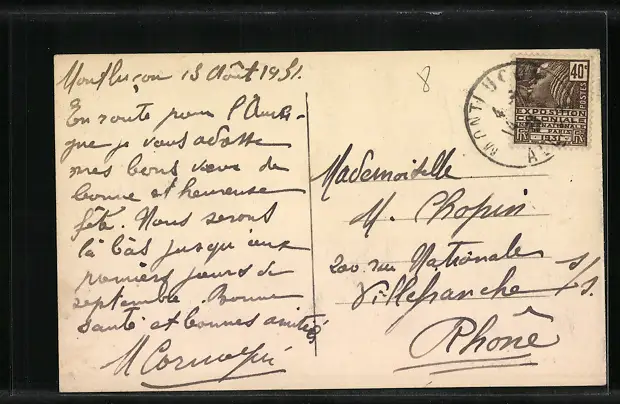 Montluçon 13 Août 1931.
En route pour l'Auver-
gne je vous adresse
mes bons vœux de
bonne et heureuse
fête. Nous serons
là bas jusqu'aux
premiers jours de
septembre. Bonne
santé et bonnes amitiés
M
8
MONTLUÇON
40c
POSTES
EXPOSITION
COLONIALE
INTERNATIONALE
PARIS
1931
Mademoiselle
M. Chopin
200 rue Nationale
Villefranche s/s.
Rhône